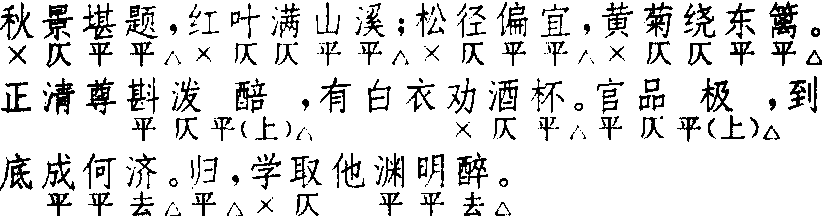 秋景堪题，红叶满山溪；松径偏宜，黄菊绕东篱。
× 仄 平 平△ × 仄 仄 平 平△ × 仄 平 平△ × 仄 仄 平 平△
正清尊斟泼 醅 ，有白衣劝酒杯。官品 极 ，到
平 仄 平(上)△ × 仄 平△ 平 仄 平(上)△
底成何济。归，学取他渊明醉。
平 平 去△ 平△ × 仄 平 平 去△